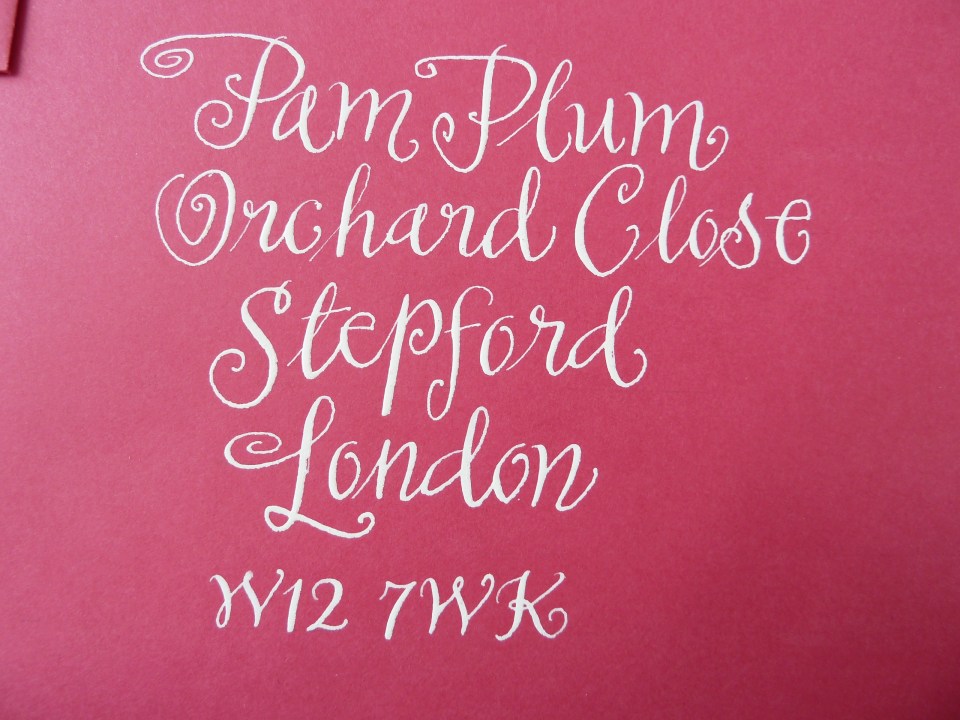 Pam Plum
Orchard Close
Stepford
London
W12 7WK